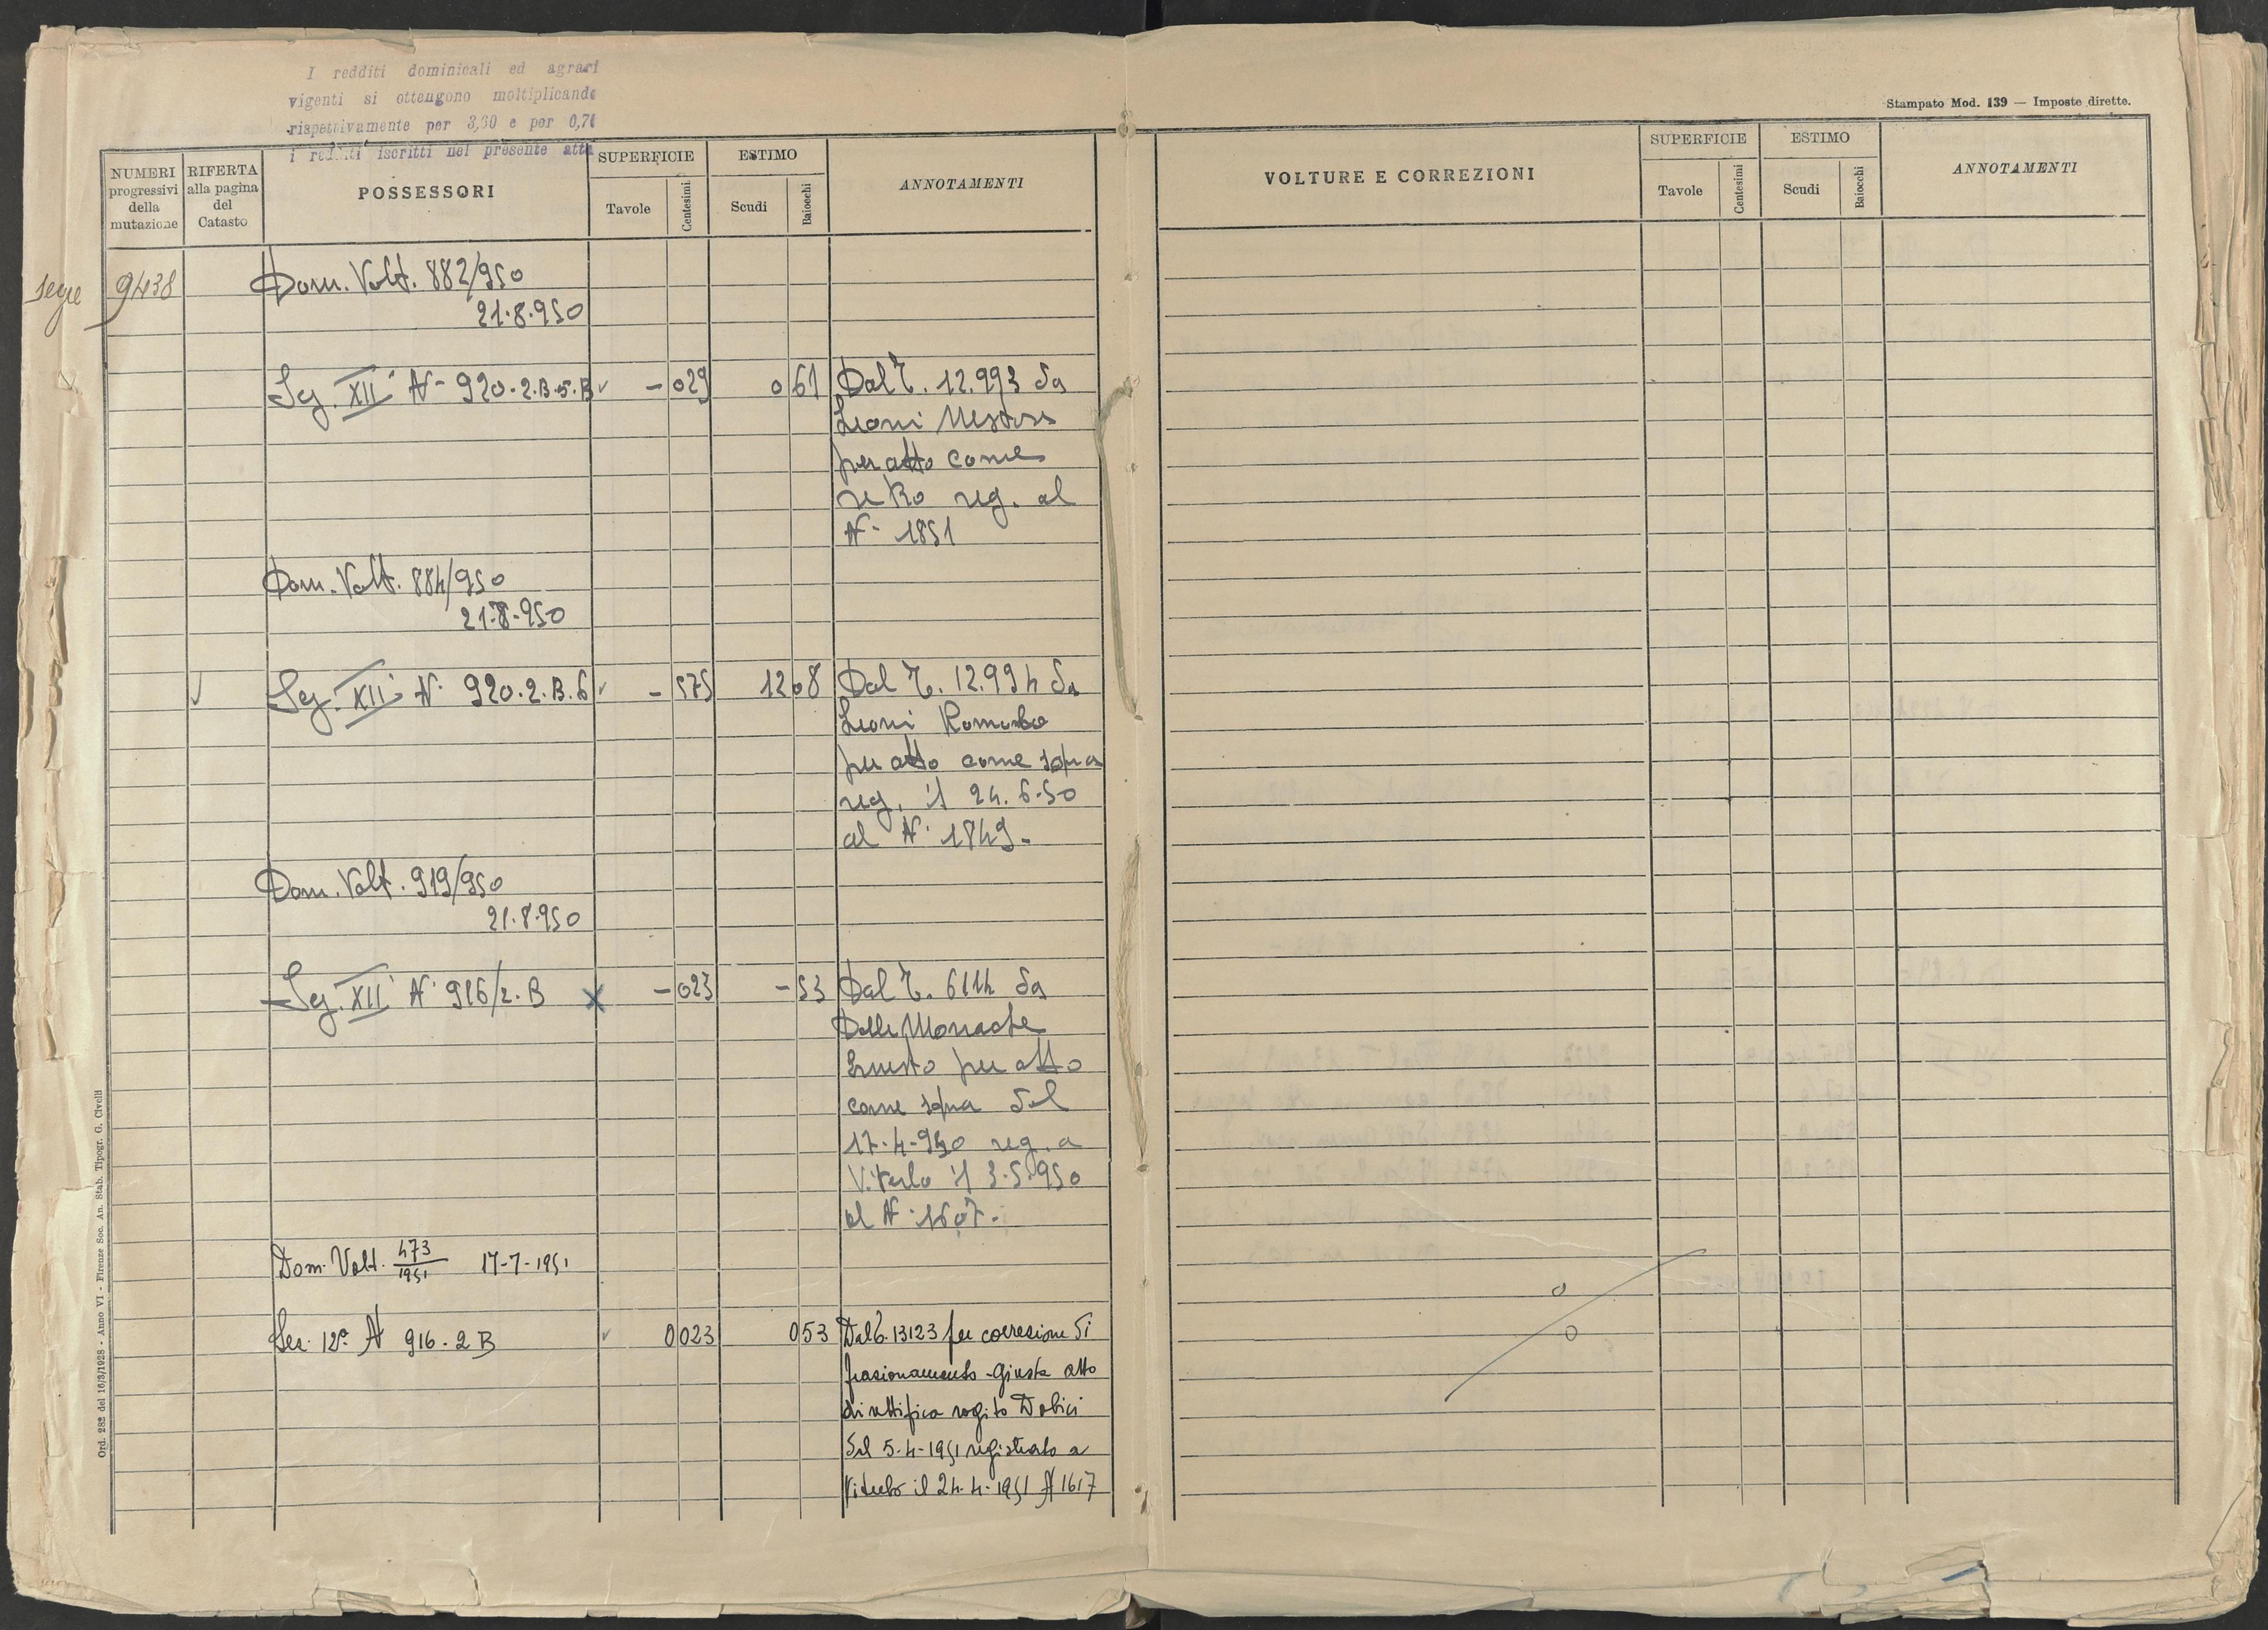 I redditi dominicali ed agrari
vigenti si ottengono moltiplicando
rispettivamente per 3,60 e per 0,70
i redditi iscritti nel presente atto
Stampato Mod. 139 — Imposte dirette.
NUMERI progressivi della mutazione
RIFERTA alla pagina del Catasto
POSSESSORI
SUPERFICIE
Tavole
Centesimi
ESTIMO
Scudi
Baiocchi
ANNOTAMENTI
VOLTURE E CORREZIONI
SUPERFICIE
Tavole
Centesimi
ESTIMO
Scudi
Baiocchi
ANNOTAMENTI
segue 9438 Dom. Volt. 882/950
21.8.950
Sez. XII N. 920.2.B.5.B - 029 0 61 Dal T. 12.993 da
Leoni
per atto come
reg. al
N. 1851
Dom. Volt. 884/950
21.8.950
Sez. XII N. 920.2.B.6 - 575 12 08 Dal T. 12.994 da
Leoni Romolo
per atto come sopra
reg. il 24.6.50
al N. 1849.
Dom. Volt. 919/950
21.8.950
Sez. XII N. 916/2.B x - 023 - 53 Dal T. 6114 da
Delle Monache
Ernesto per atto
come sopra del
17-4-950 reg. a
Viterbo il 3.5.950
al N. 1607.
Dom. Volt. 473/1951 17-7-1951
Sez. 12ª N 916.2 B 0 023 0 53 Dal T. 13123 per correzione di
frazionamento - Giusta atto
di rettifica rogito Dobici
del 5-4-1951 registrato a
Viterbo il 24-4-1951 N 1617
Ord. 282 del 16/3/1928 - Anno VI - Firenze Soc. An. Stab. Tipogr. G. Civelli